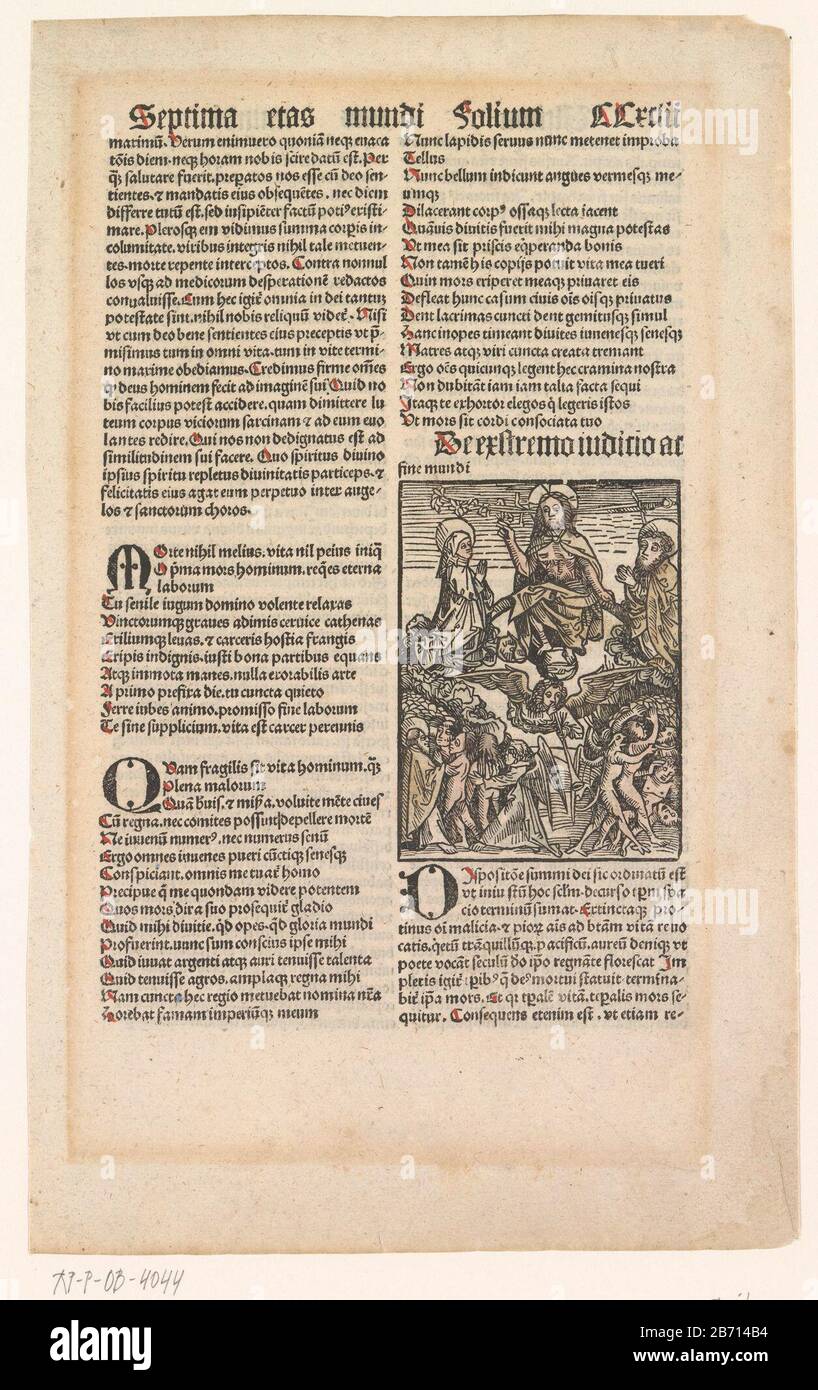 Septima etas mundi Folium CCxciii
maximū. Verum enimuero quoniā neqȝ exacā
tōis diem. neqȝ horam nobis scire datū est. Per
salutare fuerit. preparatos nos esse cū deo sen-
tientes. ⁊ mandatis eius obsequētes. nec diem
differre tutū est. sed insipiēter factū poti⁹ existi-
mare. Plerosqȝ em̄ vidimus summa corpis in-
columitate. viribus integris nihil tale metuen-
tes. morte repente interceptos. Contra nonnul
los vsqȝ ad medicorum desperationē redactos
conualuisse. Cum hec igit̄ omnia in dei tantuȝ
potestate sint. nihil nobis reliquū videt̄. Nisi
vt cum deo bene sentientes eius preceptis vt p̄-
misimus tum in omni vita. tum in vite termi-
no marime obediamus. Credimus firme om̄es
deus hominem fecit ad imaginē suā Quid no
bis facilius potest accidere. quam dimittere lu
teum corpus viciorum sarcinam ⁊ ad eum euo
lantes redire. Qui nos non dedignatus est ad
similitudinem sui facere. Quo spiritus diuino
ipsius spiritu repletus diuinitatis particeps. ⁊
felicitatis eius agat eum perpetuo inter ange-
los ⁊ sanctorum choros.
MOrte nihil melius. vita nil peius iniq̄
O p̄ma mors hominum. reqes eterna
laborum
Tu senile iugum domino volente relaxas
Vinctorumqȝ graues adimis ceruice cathenas
Exiliumqȝ leuas. ⁊ carceris hostia frangis
Eripis indignis. iusti bona partibus equans
Atqȝ immota manes. nulla exorabilis arte
A primo prefixa die. tu cuncta quieto
Ferre iubes animo. promisso fine laborum
Te sine supplicium. vita est carcer perennis
QVam fragilis sit vita hominum. qȝ
Plena malorum
Quā b̄uis. ⁊ mis̄a. voluite mēte ciues
Cū regna. nec comites possunt depellere mortē
Ne iuuenū numer⁹. nec numerus senū
Ergo omnes iuuenes pueri cūctiqȝ senesqȝ
Conspiciant. omnis me tuat̄ homo
Precipue q̄ me quondam videre potentem
Quos mors dira suo prosequit̄ gladio
Quid mihi diuitie. qd opes. qd gloria mundi
Profuerint. nunc sum conscius ipse mihi
Quid iuuat argenti atqȝ auri tenuisse talenta
Quid tenuisse agros. amplaqȝ regna mihi
Nam cuncta hec regio metuebat nomina nr̄a
Horebat famam imperiūqȝ meum
Nunc lapidis seruus nunc me tenet improba
Tellus
Nunc bellum indicunt angues vermesqȝ me-
umqȝ
Dilacerant corp⁹ ossaqȝ lecta iacent
Quāuis diuitis fuerit mihi magna potestas
Vt mea sit priscis eqperanda bonis
Non tamē his copijs potuit vita mea tueri
Quin mors eriperet meaqȝ priuaret eis
Defleat hunc casum ciuis oīs oisqȝ priuatus
Dent lacrimas cuncti dent gemitusqȝ simul
Hanc inopes timeant diuites iuuenesqȝ senesqȝ
Matres atqȝ viri cuncta creata tremant
Ergo oēs quicunqȝ legent hec cramina nostra
Non dubitāt iam iam talia facta sequi
Itaqȝ te exhortor elegos q̄ legeris istos
Vt mors sit cordi consociata tuo
De exstremo iudicio ac
fine mundi
DIspositōe summi dei sic ordinatū est
vt iniustū hoc sclm̄. decurso tp̄m spa
cio terminū sumat. Extinctaqȝ pro-
tinus oī malicia. ⁊ pior̄ aīs ad btām vitā reuo
catis. qetū trāquillūqȝ. pacificū. aureū deniqȝ vt
poete vocāt seculū do ip̄o regnāte florescat Im
pletis igit̄ tpib⁹ q̄ de⁹ mortui statuit. termina-
bit̄ ip̄a mors. Et qr tp̄alē vitā. tep̄alis mors se-
quitur. Consequens etenim est. vt etiam re-
RP-P-OB-4044
alamy
Image ID: 2B714B4
www.alamy.com